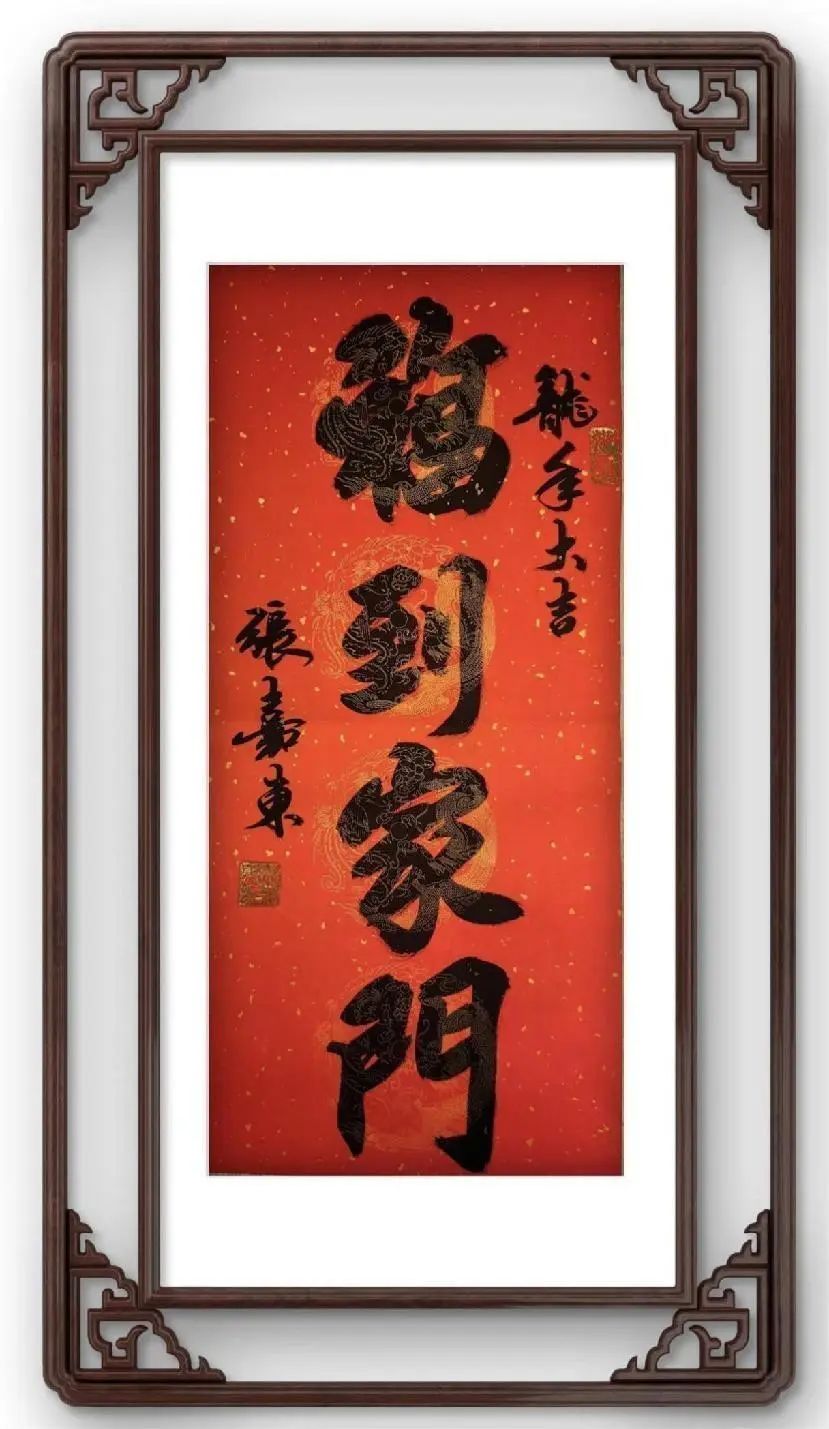 龍年大吉
福到家門
張嘉東